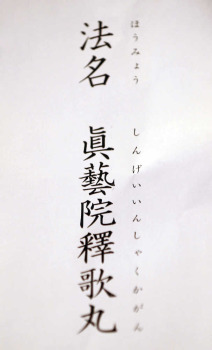 法名　眞藝院釋歌丸
ほうみょう　しんげいいんしゃくかがん